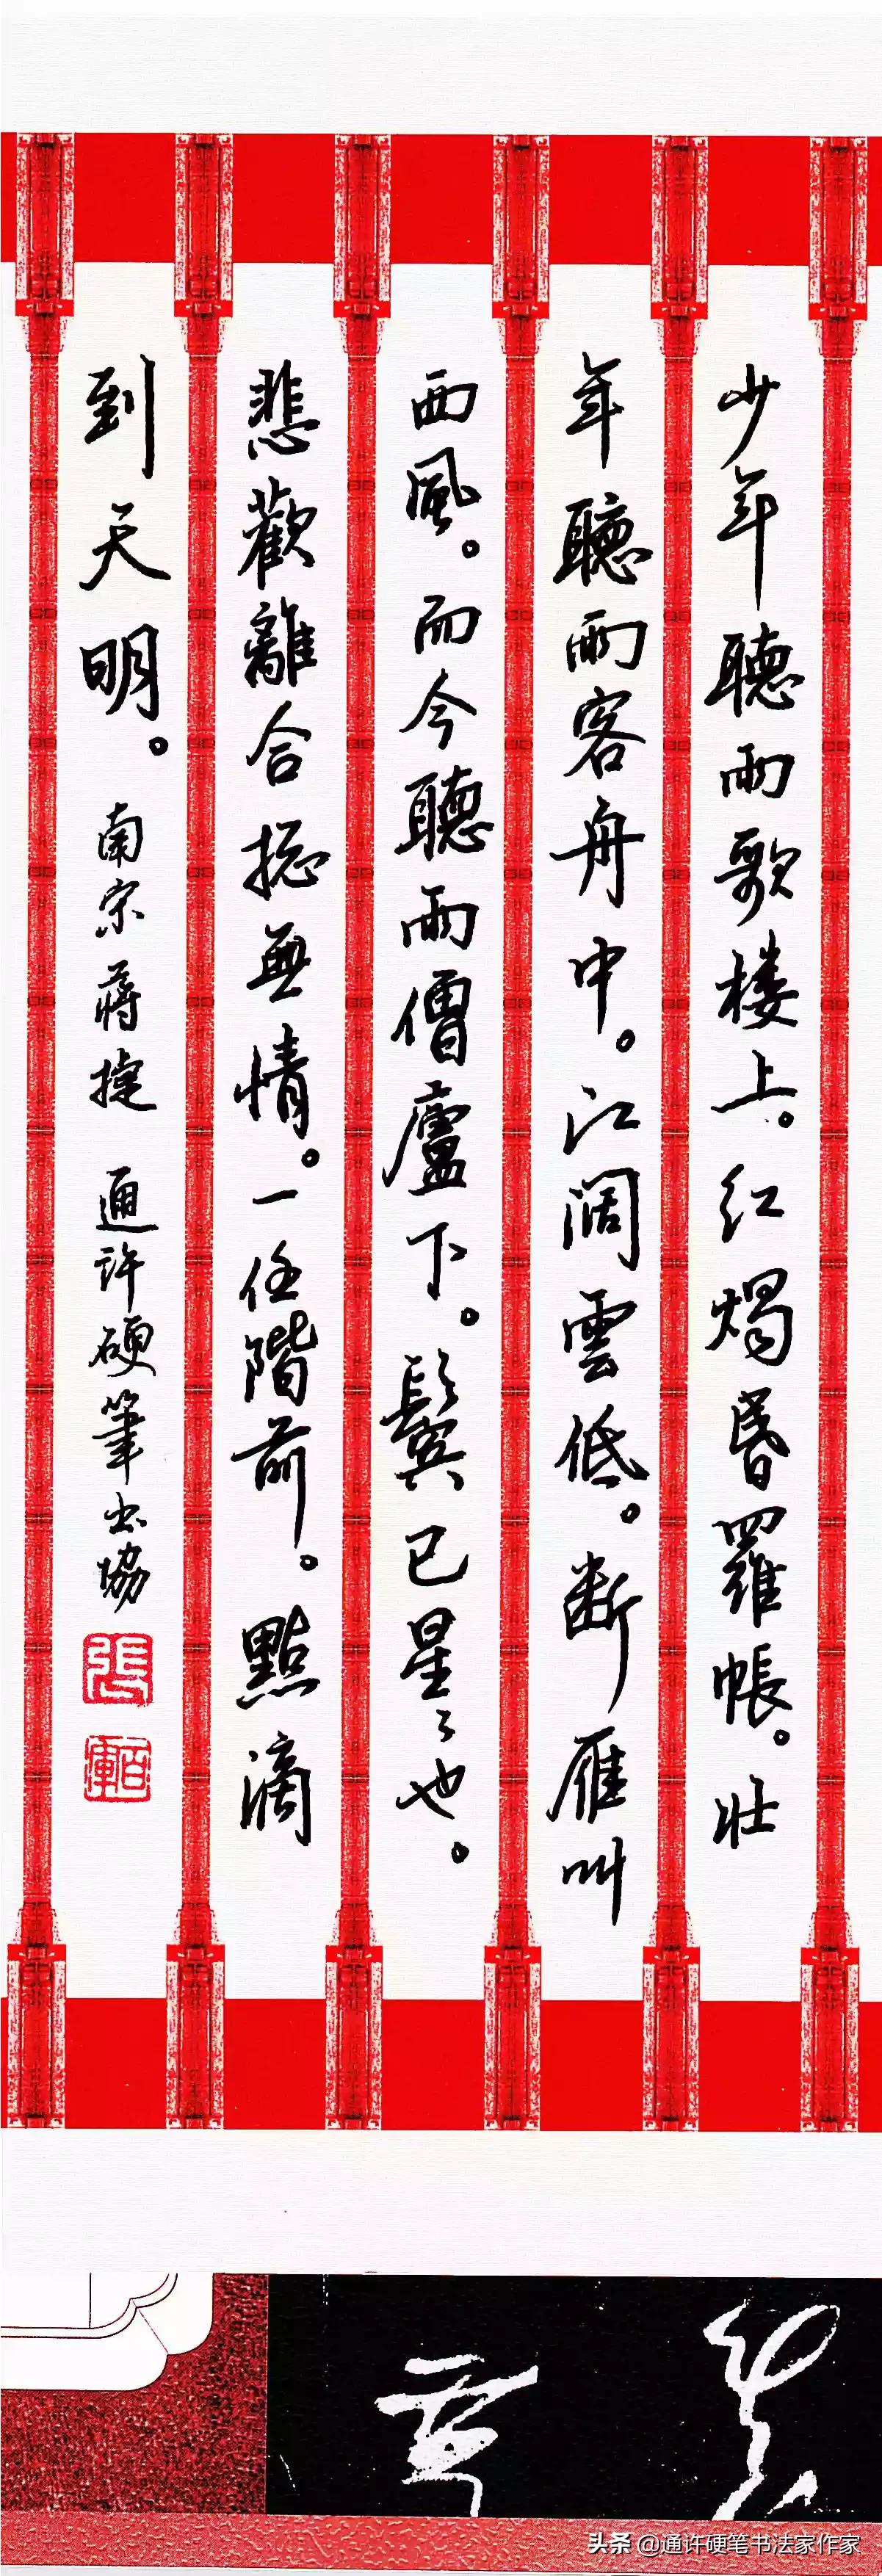 少年聽雨歌楼上。红燭昏羅帳。壮
年聽雨客舟中。江阔雲低。断雁叫
西風。而今聽雨僧廬下。鬢已星々也。
悲歡離合揔無情。一任階前。點滴
到天明。南宋蔣捷 通許硬筆书協
張
頭条 @通许硬笔书法家作家